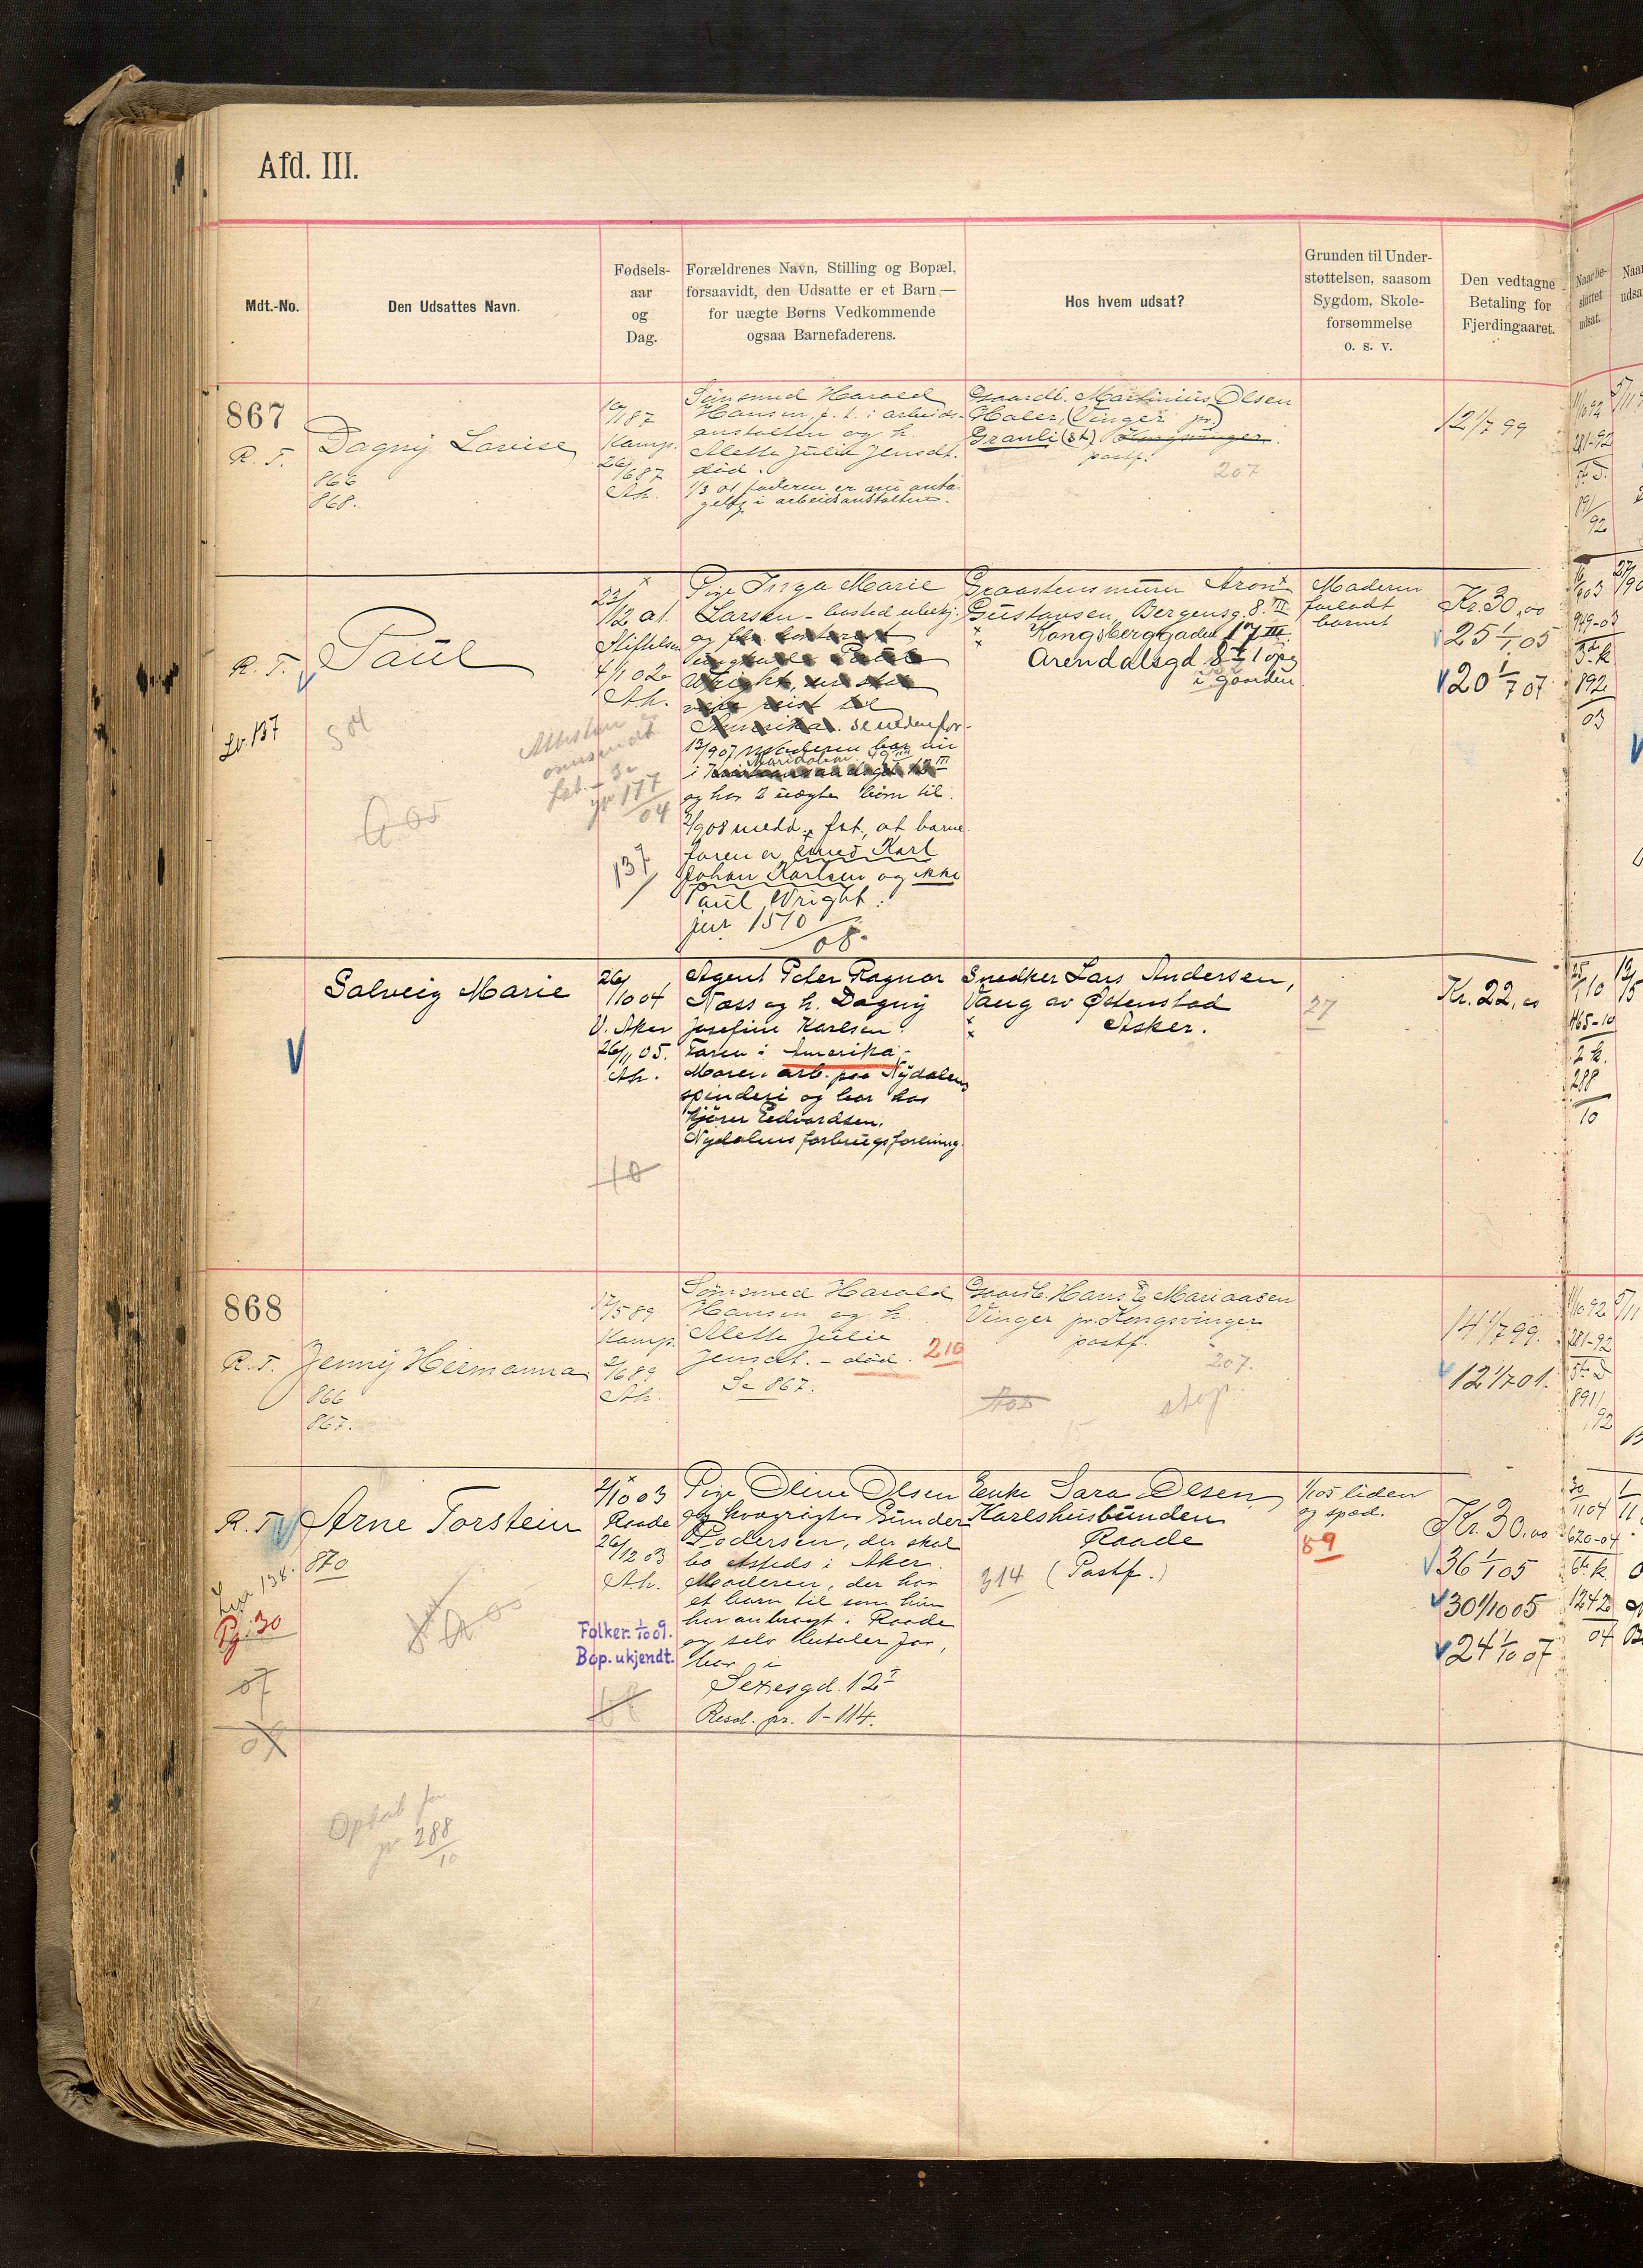 Afd. III.
Mdt.-No.
Den Udsattes Navn.
Fødsels-
aar
og
Dag.
Forældrenes Navn, Stilling og Bopæl,
forsaavidt, den Udsatte er et Barn —
for uægte Børns Vedkommende
ogsaa Barnefaderens.
Hos hvem udsat?
Grunden til Under-
støttelsen, saasom
Sygdom, Skole-
forsømmelse
o. s. v.
Den vedtagne
Betaling for
Fjerdingaaret.
Naar be-
sluttet
udsat.
867
R. T.
Dagny Lovise
866
868.
Kamp.
Ak.
Harald
Hansen, p. t. i arbeids-
anstalten og h.
Alette Julie Jensdt.
død.
1/3 01 faderen er
i arbeidsanstalten.
Gaardb. Martinius Olsen
Haler, (Vinger pr.)
Granli (st) Kongsvinger.
postf.
207
12 1/7 99
R. T.
Paul
Lv. 137
22/12 01
Stiftelsen
4/1 02
Ak.
137
Pige Inga Marie
Larsen - bosted ubekj.
og
Amerika. Se nedenfor
13/9 07 Moderen bor nu
i
og har 2 uægte børn til.
2/9 08 medd. fat., at barne-
faren er smed Karl
Johan Karlsen og ikke
Paul Wright.
jur 1510
08.
Graastensmurer Aron
Gustavsen, Bergensg. 8. III
Kongsberggaden 17 III.
Arendalsgd. 8 I opg
i gaarden
Moderen
forladt
barnet
Kr. 30,00
25 1/1 05
20 1/7 07
949-03
892
03
Solveig Marie
26/10 04
V. Aker
26/11 05.
Ak.
Agent Peter Ragnar
Næss og h. Dagny
Josefine Karlsen
Faren i Amerika.
Moren arb. paa Nydalens
spinderi og bor hos
kjører Edvardsen,
Nydalens forbrugsforening.
10
Snedker Lars Andersen,
Vang av Østenstad
Asker.
27
Kr. 22,00
465-10
288
10
868
R. T.
Jenny Hermanna
866
867.
17/5 89
Kamp.
2/6 89
Ak.
Harald
Hansen og h.
Alette Julie
Jensdt. - død.
Se 867.
210
Hans E. Mariaasen
Vinger pr. Kongsvinger
postf.
207.
stop
14 1/7 99.
12 1/7 01.
R. T.
Arne Torstein
870
138.
Pg. 30
07
2/10 03
Raade
26/12 03
Ak.
Folker. 1/10 09.
Bop. ukjendt.
Pige Oline Olsen
og kvægrigter Gunder
Pedersen, der skal
bo etsteds i Aker.
Moderen, der har
et barn til som hun
har anbragt i Raade
og selv betaler for,
bor i
12 I
Resol. pr. 1-114.
Enke Sara Olsen
Karlshusbunden
Raade
314 (Postf.)
1/1 05 liden
og spæd.
89
Kr. 30,00
36 1/1 05
30 1/10 05
24 1/10 07
620-04
1242
04
Ophørt fra
pr 288
10